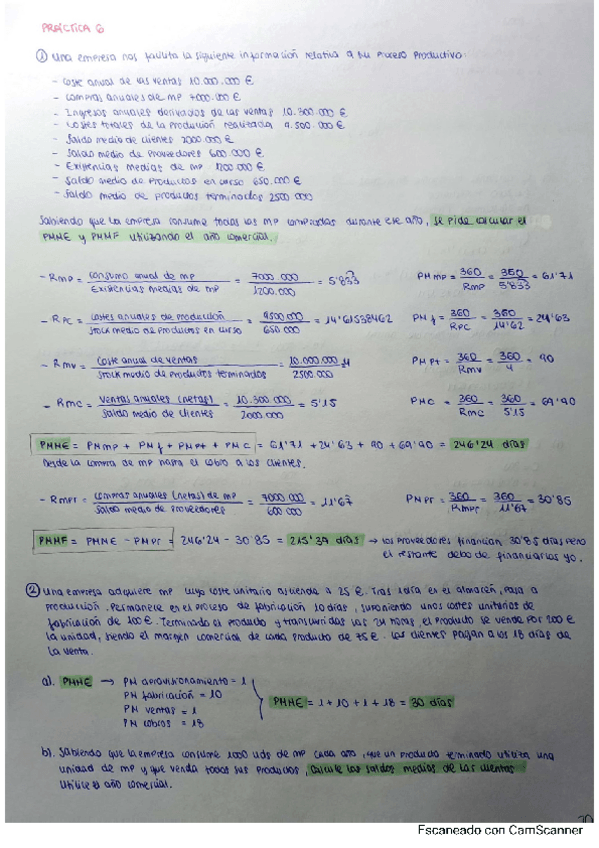 PRÁCTICA 6
① Una empresa nos facilita la siguiente información relativa a su proceso productivo:
- Coste anual de las ventas 10.000.000 €
- Compras anuales de mp 7000.000 €
- Ingresos anuales derivados de las ventas 10.300.000 €
- Costes totales de la producción realizada 9.500.000 €
- Saldo medio de clientes 2000.000 €
- Saldo medio de proveedores 600.000 €
- Existencias medias de mp 1200.000 €
- Saldo medio de productos en curso 650.000 €
- Saldo medio de productos terminados 2500.000
Sabiendo que la empresa consume todas las mp compradas durante ese año, se pide calcular el
PMME y PMMF utilizando el año comercial.
- Rmp = consumo anual de mp / Existencias medias de mp = 7000.000 / 1200.000 = 5'833 PMmp = 360 / Rmp = 360 / 5'833 = 61'71
- RPC = costes anuales de producción / stock medio de productos en curso = 9500.000 / 650.000 = 14'61538462 PMf = 360 / RPC = 360 / 14'62 = 24'63
- Rmv = Coste anual de ventas / Stock medio de productos terminados = 10.000.000 / 2500.000 = 4 PMpt = 360 / Rmv = 360 / 4 = 90
- Rmc = ventas anuales (netas) / Saldo medio de clientes = 10.300.000 / 2000.000 = 5'15 PMC = 360 / Rmc = 360 / 5'15 = 69'90
PMME = PMmp + PMf + PMpt + PMC = 61'71 + 24'63 + 90 + 69'90 = 246'24 días
Desde la compra de mp hasta el cobro a los clientes.
- Rmpr = compras anuales (netas) de mp / Saldo medio de proveedores = 7000.000 / 600.000 = 11'67 PMpr = 360 / Rmpr = 360 / 11'67 = 30'85
PMMF = PMME - PMpr = 246'24 - 30'85 = 215'39 días → los proveedores financian 30'85 días pero
el restante debo de financiarlos yo.
② Una empresa adquiere mp cuyo coste unitario asciende a 25 €. Tras 1 día en el almacén, pasa a
producción. Permanece en el proceso de fabricación 10 días, suponiendo unos costes unitarios de
fabricación de 100 €. Terminado el producto y transcurridas las 24 horas, el producto se vende por 200 €
la unidad, siendo el margen comercial de cada producto de 75 €. Los clientes pagan a los 18 días de
la venta.
a). PMME → PM aprovisionamiento = 1
PM fabricación = 10
PM ventas = 1
PM cobros = 18
PMME = 1 + 10 + 1 + 18 = 30 días
b). Sabiendo que la empresa consume 1000 uds de mp cada año, que un producto terminado utiliza una
unidad de mp y que venda todos sus productos, calcule los saldos medios de las cuentas
Utilice el año comercial.
Escaneado con CamScanner